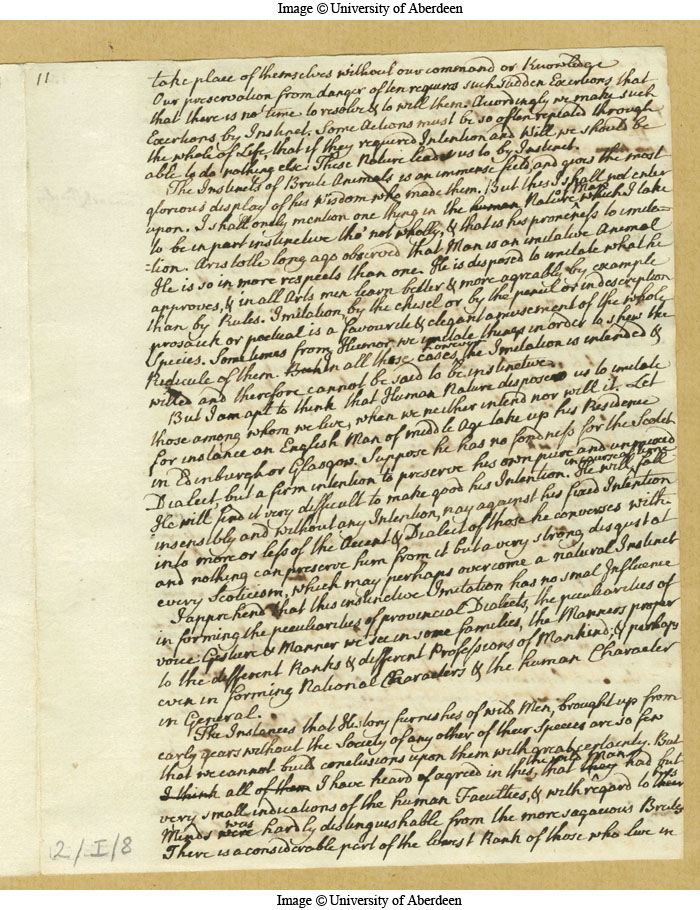 Image © University of Aberdeen
11
take place of themselves without our command or Knowledge
Our preservation from danger often requires such sudden Exertions that
that there is no time to resolve & to will them. Acordingly we make such
Exertions by Instinct. Some Actions must be so often repeated through
the whole of Life, that if they required Intention and Will we should be
able to do nothing else: These Nature leads us to by Instinct.
The Instincts of Brute Animals is an immense field and gives the most
glorious display of his Wisdom who made them. But this I shall not enter
upon. I shall onely mention one thing in the human Nature of Man which I take
to be in part instinctive tho' not wholly, & that is his proneness to imita-
-tion. Aristotle long ago observed that Man is an imitative Animal
He is so in more respects than one. He is disposed to imitate what he
approves, & in all Arts men learn better & more agreably by example
than by Rules. Imitation by the chisel or by the pencil or in description
prosaick or poetical is a favourite & elegant amusement of the whole
Species. Sometimes from Humor we imitate things in order to shew the
Redicule of them. But in all these cases however the Imitation is intended &
willed and therefore cannot be said to be instinctive.
But I am apt to think that Human Nature disposes us to imitate
those among whom we live, when we neither intend nor will it. Let
for instance an English Man of middle Age take up his Residence
in Edinburgh or Glasgow. Suppose he has no fondness for the Scotch
Dialect, but a firm intention to preserve his own pure and unmixed
He will find it very difficult to make good his Intention. He will in course of time fall
insensibly and without any Intention, nay against his fixed Intention
into more or less of the Accent & Dialect of those he converses with
and nothing can preserve him from it but a very strong disgust at
every Scoticism, which may perhaps overcome a natural Instinct
I apprehend that this instinctive Imitation has no smal Influence
in forming the peculiarities of provincial Dialects, the peculiarities of
voice Gesture & Manner we see in some families, the Manners proper
to the different Ranks & different Professions of Mankind; & perhaps
even in forming National Characters & the human Character
in General.
The Instances that History furnishes of wild Men, brought up from
early years without the Society of any other of their Species are so few
that we cannot build conclusions upon them with great certainty. But
I think all of them I have heard of agreed in this, that the wild Man they had but
very small indications of the human Faculties, & with regard to their his
Minds were was hardly distinguishable from the more sagacious Brutes
There is a considerable part of the lowest Rank of those who live in
2/I/8
Image © University of Aberdeen